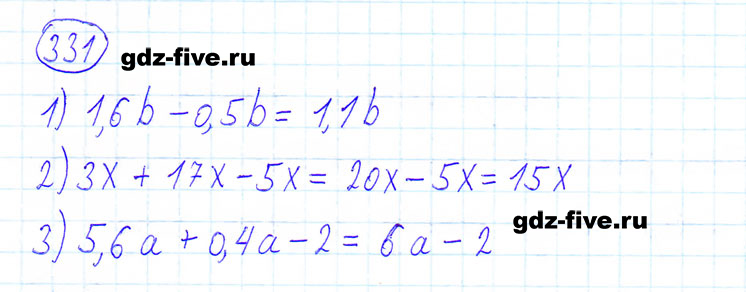 331 gdz-five.ru
1) 1,6b - 0,5b = 1,1b
2) 3x + 17x - 5x = 20x - 5x = 15x
3) 5,6a + 0,4a - 2 = 6a - 2
gdz-five.ru